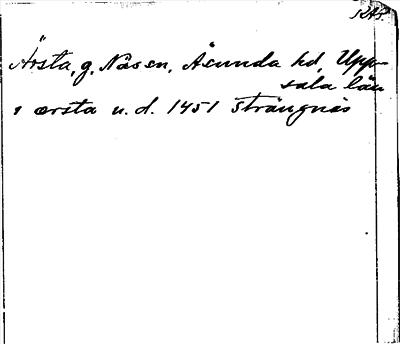 RAp.
Ärsta, g. Näs sn, Åsunda hd, Upp-
sala län
i ærsta u. d. 1451 Strängnäs